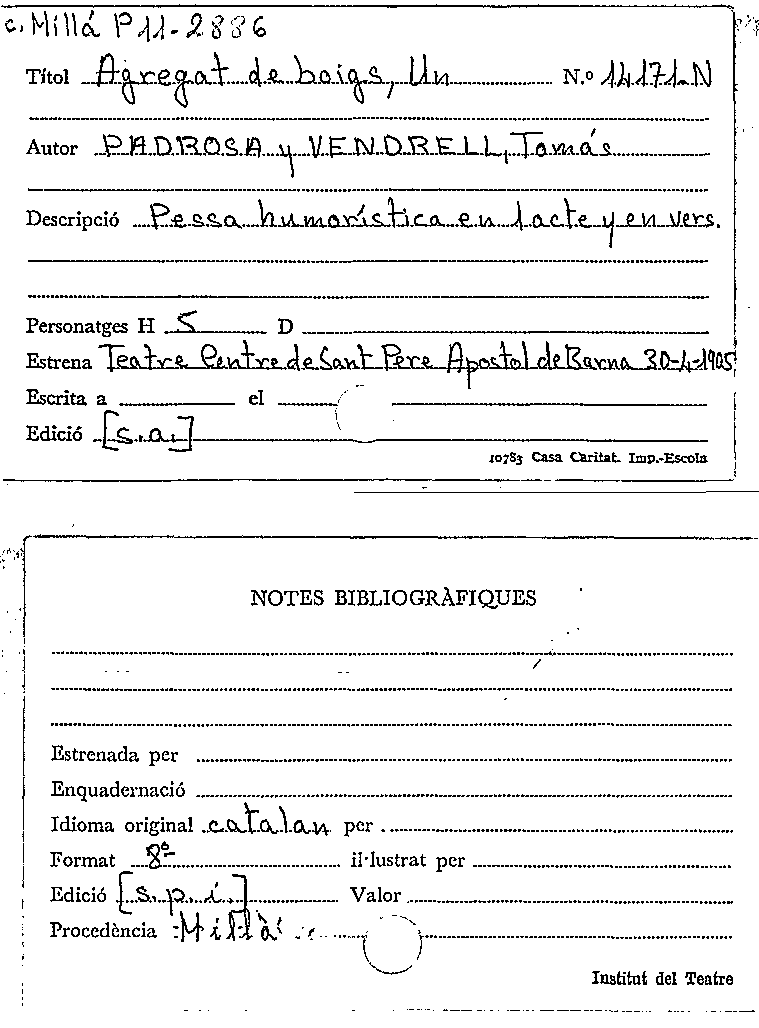 c. Millá P 11-2886
Títol Agregat de boigs, Un N.º 14171-N
Autor PADROSA y VENDRELL, Tomás
Descripció Pessa humorística en 1 acte y en vers.
Personatges H 5 D
Estrena Teatre Centre de Sant Pere Apostol de Barna 30-4-1905
Escrita a el
Edició [s.a.]
10783 Casa Caritat. Imp.-Escola
NOTES BIBLIOGRÀFIQUES
Estrenada per
Enquadernació
Idioma original catalan per
Format 8º il·lustrat per
Edició [s.p.i.] Valor
Procedència Millà
Institut del Teatre